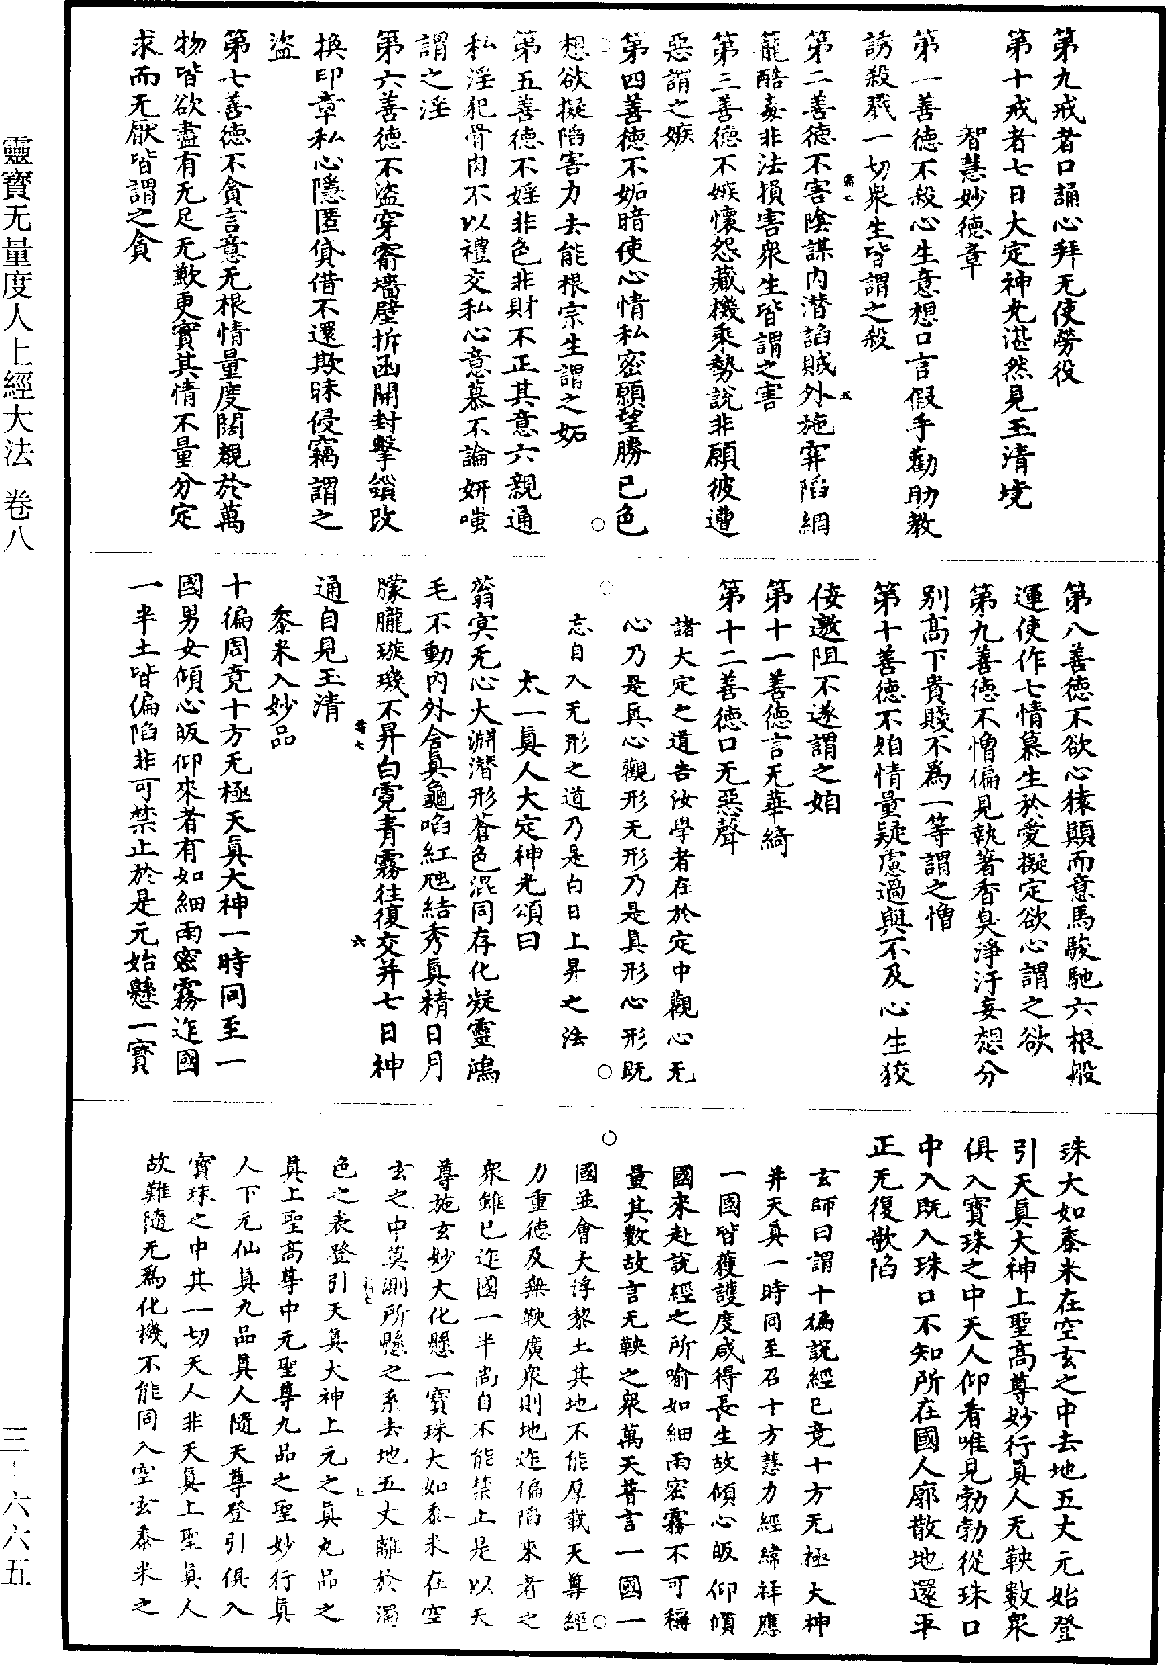 第九戒者口誦心拜无使勞役
第十戒者七日大定神光湛然見玉清境
智慧妙德章
第一善德不殺心生意想口言假手勸助教
誘殺戮一切衆生皆謂之殺
第二善德不害陰謀內潛謟賊外施穽陷網
籠酷毒非法損害衆生皆謂之害
第三善德不嫉懷怨藏機乘勢說非願彼遭
惡謂之嫉
第四善德不妬暗使心情私密顒望勝已色
想欲擬陷害力去能根宗生謂之妬
第五善德不婬非色非財不正其意六親通
私淫犯骨肉不以禮交私心意慕不論妍嗤
謂之淫
第六善德不盜穿窬墻壁拆函開封擊鎖改
換印章私心隱匿貸借不還欺昧侵竊謂之
盜
第七善德不貪言意无根情量度闊覩於萬
物皆欲盡有无足无歉更實其情不量分定
求而无厭皆謂之貪
第八善德不欲心猿顛而意馬駿馳六根般
運使作七情慕生於愛擬定欲心謂之欲
第九善德不憎偏見執著香臭淨汙妄想分
別高下貴賤不爲一等謂之憎
第十善德不妲情量疑慮過與不及心生狡
倿邀阻不遂謂之妲
第十一善德言无華綺
第十二善德口无惡聲
諸大定之道告汝學者在於定中觀心无
心乃是真心觀形无形乃是真形心形旣
忘自入无形之道乃是白日上昇之法
太一眞人大定神光頌曰
蓊冥无心大淵潛形蒼色混同存化凝靈鴻
毛不動內外含真龜啗紅虺結秀真精日月
朦朧璇璣不昇白霓青霧往復交并七日神
通自見玉清
黍米入妙品
十徧周竟十方无極天眞大神一時同至一
國男女傾心皈仰來者有如細雨密霧迮國
一半土皆偏陷非可禁止於是元始懸一寶
珠大如黍米在空玄之中去地五丈元始登
引天眞大神上聖高尊妙行真人无鞅數衆
俱入寶珠之中天人仰看唯見勃勃從珠口
中入旣入珠口不知所在國人廓散地還平
正无復欹陷
玄師曰謂十徧說經已竟十方无極大神
并天真一時同至召十方慧力經緯祥應
一國皆獲護度咸得長生故傾心皈仰傾
國來赴說經之所喻如細雨密霧不可稱
量其數故言无鞅之衆萬天普言一國一
國並會大浮黎土其地不能厚載天尊經
力重德及無鞅廣衆則地迮偏陷來者之
衆雖已迮國一半尚自不能禁止是以天
尊施玄妙大化懸一寶珠大如黍米在空
玄之中莫測所懸之系去地五丈離於濁
色之表登引天真大神上元之真九品之
真上聖高尊中元聖尊九品之聖妙行真
人下元仙真九品真人隨天尊登引俱入
寶珠之中其一切天人非天真上聖眞人
故難隨无爲化機不能同入空玄黍米之
靈寶无量度人上經大法 卷八
三－六六五